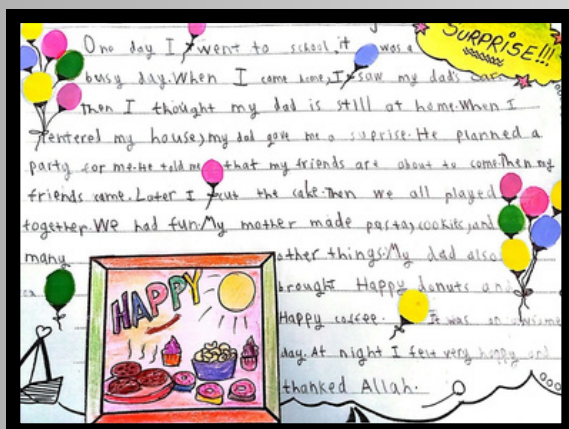 SURPRISE!!!
One day I went to school, it was a
busy day. When I came home, I saw my dad's car.
Then I thought my dad is still at home. When I
entered my house, my dad gave me a suprise. He planned a
party for me. He told me that my friends are about to come. Then my
friends came. Later I cut the cake. Then we all played
together. We had fun. My mother made pasta, cookies, and
many other things. My dad also
brought Happy donuts and
Happy coffee. It was an awsome
day. At night I felt very happy and
thanked Allah.
HAPPY